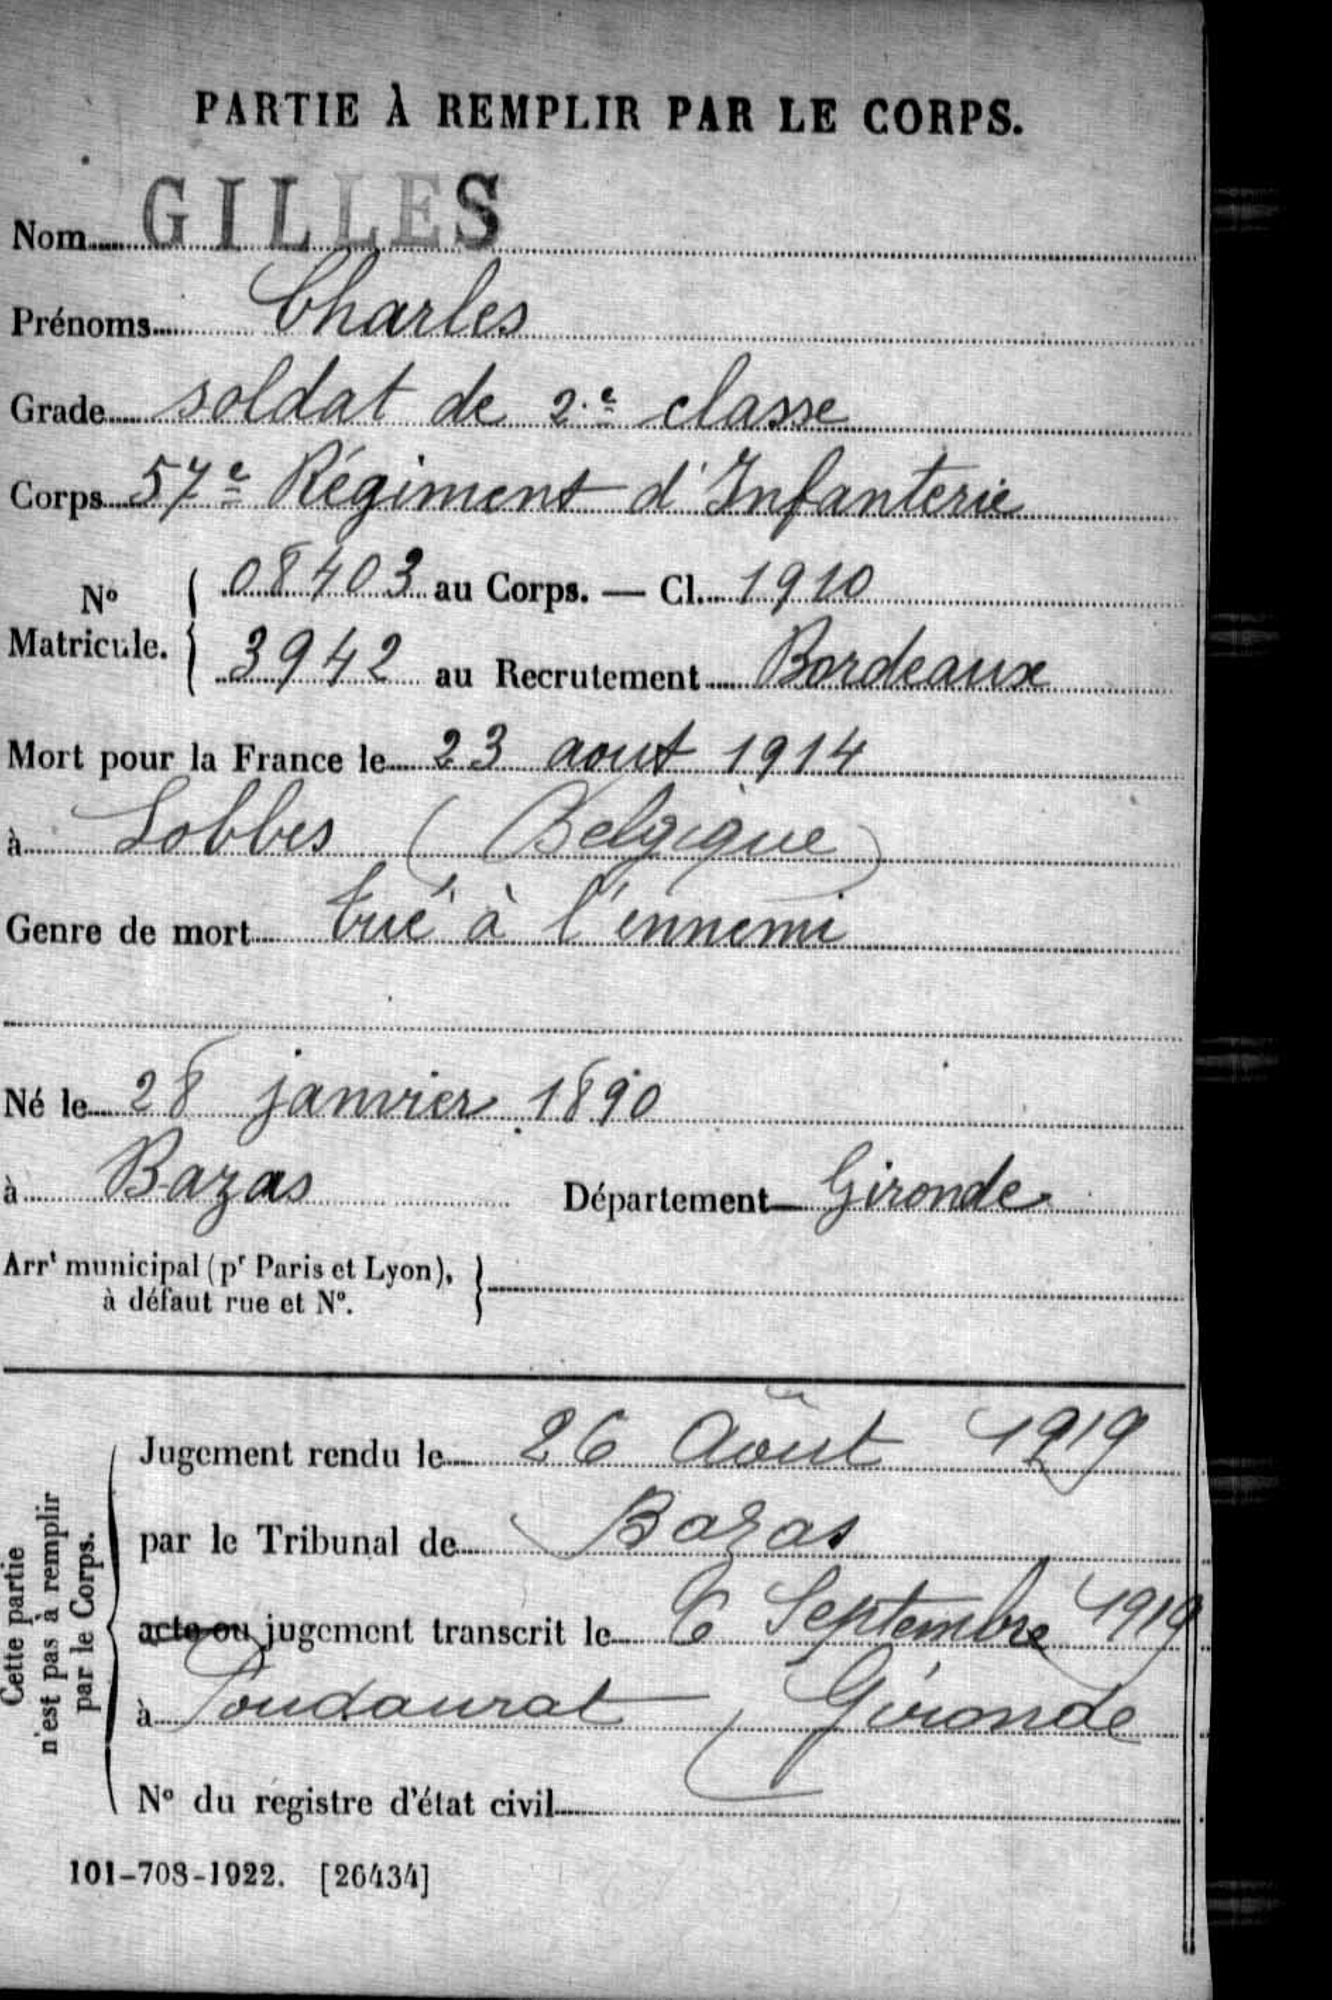 PARTIE À REMPLIR PAR LE CORPS.
Nom GILLES
Prénoms Charles
Grade soldat de 2.e classe
Corps 57e Régiment d'Infanterie
No Matricule. { 08403 au Corps. — Cl. 1910
3942 au Recrutement Bordeaux
Mort pour la France le 23 aout 1914
à Lobbes (Belgique)
Genre de mort tué à l'ennemi
Né le 28 janvier 1890
à Bazas Département Gironde
Arrt municipal (pr Paris et Lyon), }
à défaut rue et No.
Cette partie
n'est pas à remplir
par le Corps.
Jugement rendu le 26 Août 1919
par le Tribunal de Bazas
acte ou jugement transcrit le 6 Septembre 1919
à Poudaurat (Gironde
No du registre d'état civil
101-708-1922. [26434]